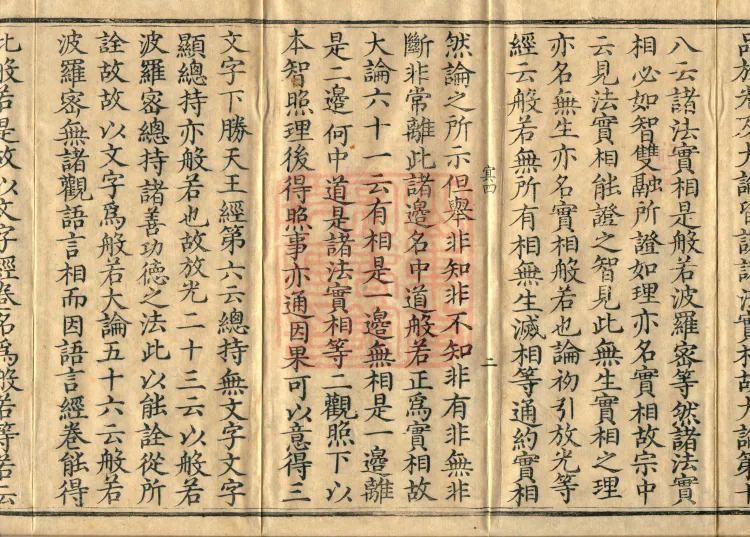 品放光及大論皆說諸法實相故大論第十
八云諸法實相是般若波羅密等然諸法實
相必如智雙融所證如理亦名實相故宗中
云見法實相能證之智見此無生實相之理
亦名無生亦名實相般若也論初引放光等
經云般若無所有相無生滅相等通約實相
然論之所示但舉非知非不知非有非無非
斷非常離此諸邊名中道般若正爲實相故
大論六十一云有相是一邊無相是一邊離
是二邊何中道是諸法實相等二觀照下以
本智照理後得照事亦通因果可以意得三
文字下勝天王經第六云總持無文字文字
顯總持亦般若也故放光二十三云以般若
波羅密總持諸善功德之法此以能詮從所
詮故故以文字爲般若大論五十六云般若
波羅密無諸觀語言相而因語言經卷能得
此般若是故以文字經卷名爲般若等若云
二